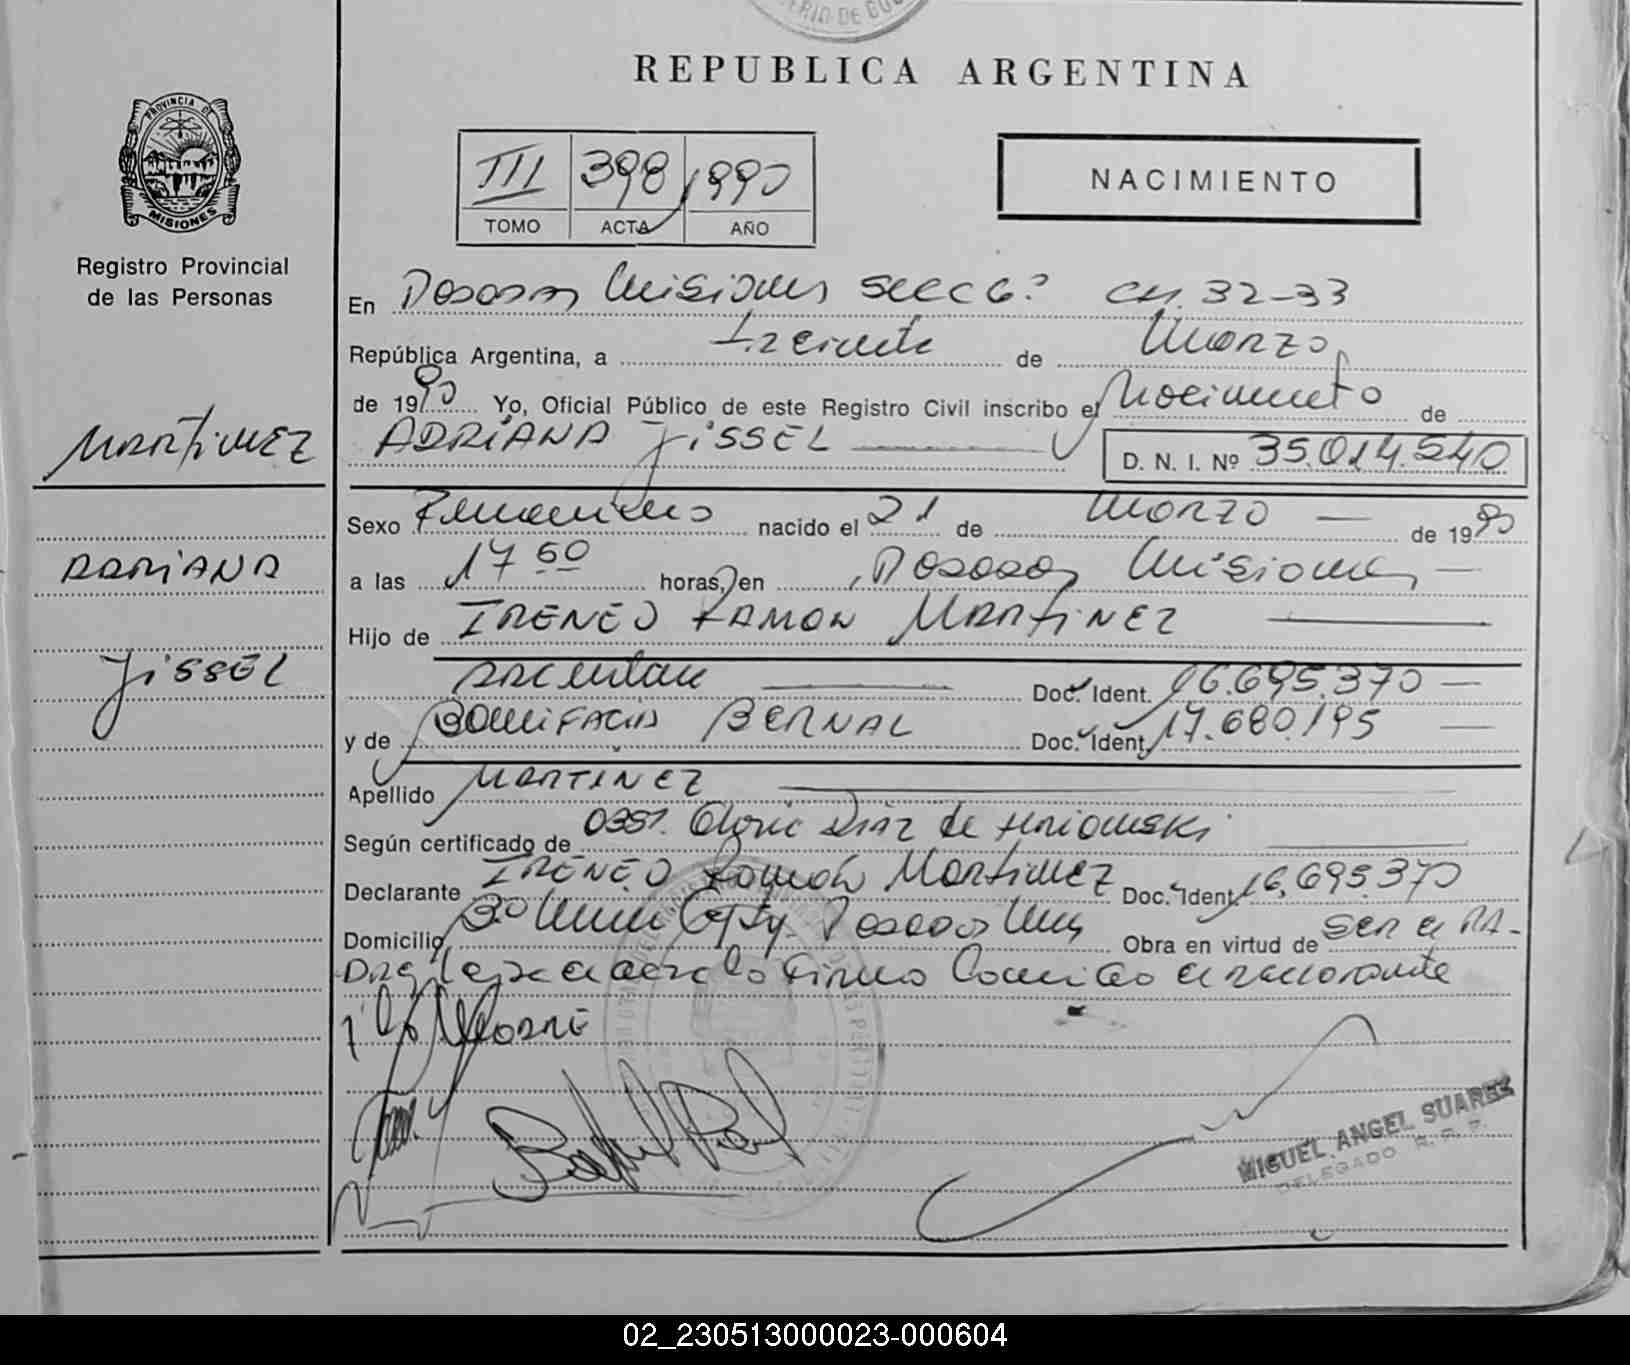 REPUBLICA ARGENTINA
PROVINCIA DE
MISIONES
Registro Provincial
de las Personas
III 398 1990
TOMO ACTA AÑO
NACIMIENTO
En Posadas Misiones Secc 6ª 32-33
República Argentina, a treinta de Marzo
de 1990 Yo, Oficial Público de este Registro Civil inscribo el Nacimiento de
ADRIANA JISSEL D. N. I. Nº 35.014.540
MARTINEZ
ADRIANA
JISSEL
Sexo Femenino nacido el 21 de Marzo de 1990
a las 17 50 horas, en Posadas Misiones
Hijo de IRENEO RAMON MARTINEZ
Doc. Ident. 16.695.370
y de BONIFACIA BERNAL Doc. Ident. 17.680.195
Apellido MARTINEZ
Según certificado de Diaz de
Declarante IRENEO Ramón Martinez Doc. Ident. 16.695.370
Domicilio Posadas Obra en virtud de ser el PA-
DRE
MIGUEL ANGEL SUAREZ
DELEGADO R. P. P.
02_230513000023-000604